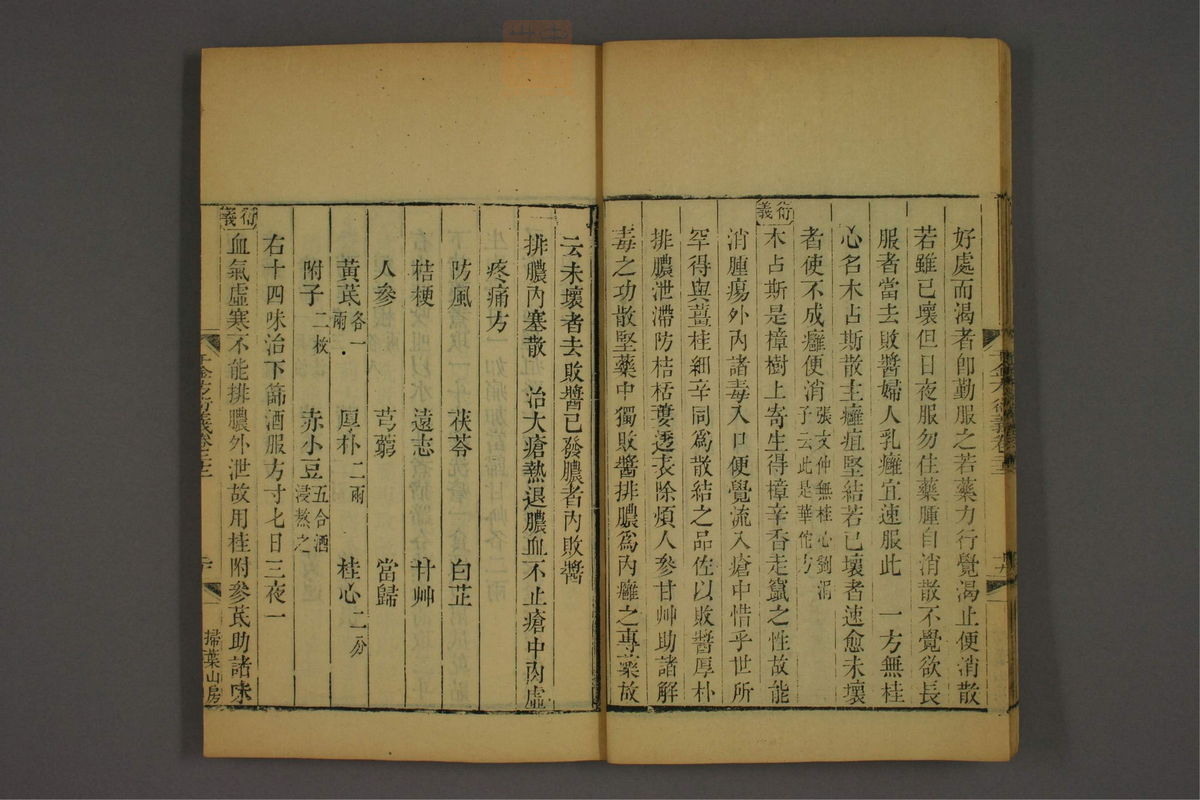 好處而渴者卽勤服之若藥力行覺渴止便消散
若雖已壞但日夜服勿住藥腫自消散不覺欲長
服者當去敗醬婦人乳癰宜速服此 一方無桂
心名木占斯散主癰疽堅結若已壞者速愈未壞
者使不成癰便消張文仲無桂心劉涓
子云此是華佗方
衍義
木占斯是樟樹上寄生得樟辛香走竄之性故能
消腫瘍外內諸毒入口便覺流入瘡中惜乎世所
罕得與薑桂細辛同爲散結之品佐以敗醬厚朴
排膿泄滯防桔栝蔞透表除煩人參甘艸助諸解
毒之功散堅藥中獨敗醬排膿爲內癰之專藥故
云未壞者去敗醬已發膿者內敗醬
排膿內塞散 治大瘡熱退膿血不止瘡中肉虛
疼痛方
防風 茯苓 白芷
桔梗 遠志 甘艸
人參 芎藭 當歸
黃芪各一
兩 厚朴二兩 桂心二分
附子二枚 赤小豆五合酒
浸熬之
右十四味治下篩酒服方寸匕日三夜一
衍義
血氣虛寒不能排膿外泄故用桂附參芪助諸味
掃葉山房